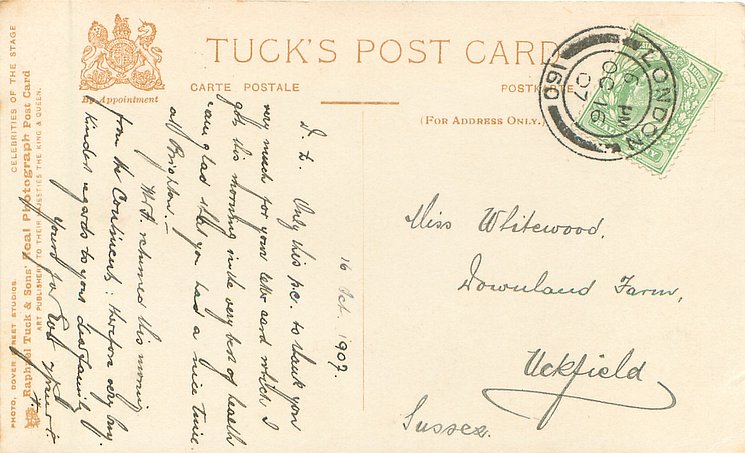 TUCK'S POST CARD
By Appointment
CARTE POSTALE
POSTKARTE
(FOR ADDRESS ONLY.)
LONDON
6 PM
OC 16
07
160
CELEBRITIES OF THE STAGE
Raphael Tuck & Sons' Real Photograph Post Card
ART PUBLISHERS TO THEIR MAJESTIES THE KING & QUEEN.
PHOTO, DOVER STREET STUDIOS.
16 Oct. 1907.
D. L. Only this p.c. to thank you
very much for your letter card which I
got this morning in the very best of health
I am glad that you had a nice time
at Brighton. —
returned this morning
from the Continent: therefore very busy.
Kindest regards to your dear family
Yours for Ever
Miss Whitewood,
Downland Farm,
Uckfield
Sussex.